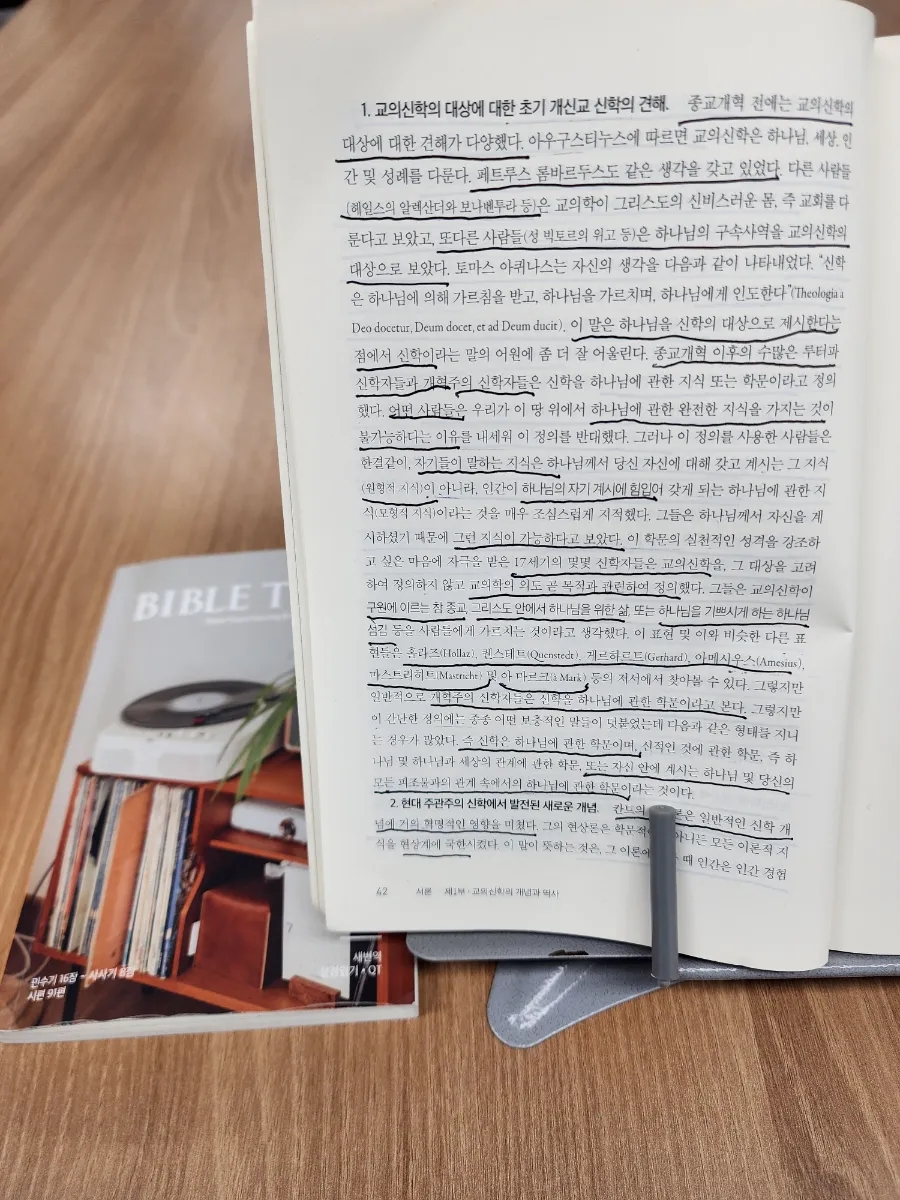 1. 교의신학의 대상에 대한 초기 개신교 신학의 견해. 종교개혁 전에는 교의신학의
대상에 대한 견해가 다양했다. 아우구스티누스에 따르면 교의신학은 하나님, 세상, 인
간 및 성례를 다룬다. 페트루스 롬바르두스도 같은 생각을 갖고 있었다. 다른 사람들
(헤일스의 알렉산더와 보나벤투라 등)은 교의학이 그리스도의 신비스러운 몸, 즉 교회를 다
룬다고 보았고, 또다른 사람들(성 빅토르의 위고 등)은 하나님의 구속사역을 교의신학의
대상으로 보았다. 토마스 아퀴나스는 자신의 생각을 다음과 같이 나타내었다. "신학
은 하나님에 의해 가르침을 받고, 하나님을 가르치며, 하나님에게 인도한다"(Theologia a
Deo docetur, Deum docet, et ad Deum ducit). 이 말은 하나님을 신학의 대상으로 제시한다는
점에서 신학이라는 말의 어원에 좀 더 잘 어울린다. 종교개혁 이후의 수많은 루터파
신학자들과 개혁주의 신학자들은 신학을 하나님에 관한 지식 또는 학문이라고 정의
했다. 어떤 사람들은 우리가 이 땅 위에서 하나님에 관한 완전한 지식을 가지는 것이
불가능하다는 이유를 내세워 이 정의를 반대했다. 그러나 이 정의를 사용한 사람들은
한결같이, 자기들이 말하는 지식은 하나님께서 당신 자신에 대해 갖고 계시는 그 지식
(원형적 지식)이 아니라, 인간이 하나님의 자기 계시에 힘입어 갖게 되는 하나님에 관한 지
식(모형적 지식)이라는 것을 매우 조심스럽게 지적했다. 그들은 하나님께서 자신을 계
시하셨기 때문에 그런 지식이 가능하다고 보았다. 이 학문의 실천적인 성격을 강조하
고 싶은 마음에 자극을 받은 17세기의 몇몇 신학자들은 교의신학을, 그 대상을 고려
하여 정의하지 않고 교의학의 의도 곧 목적과 관련하여 정의했다. 그들은 교의신학이
구원에 이르는 참 종교, 그리스도 안에서 하나님을 위한 삶, 또는 하나님을 기쁘시게 하는 하나님
섬김 등을 사람들에게 가르치는 것이라고 생각했다. 이 표현 및 이와 비슷한 다른 표
현들은 홀라즈(Hollaz), 퀜스테트(Quenstedt), 게르하르트(Gerhard), 아메시우스(Amesius),
마스트리히트(Mastricht) 및 아 마르크(à Mark) 등의 저서에서 찾아볼 수 있다. 그렇지만
일반적으로 개혁주의 신학자들은 신학을 하나님에 관한 학문이라고 본다. 그렇지만
이 간단한 정의에는 종종 어떤 보충적인 말들이 덧붙었는데 다음과 같은 형태를 지니
는 경우가 많았다. 즉 신학은 하나님에 관한 학문이며, 신적인 것에 관한 학문, 즉 하
나님 및 하나님과 세상의 관계에 관한 학문, 또는 자신 안에 계시는 하나님 및 당신의
모든 피조물과의 관계 속에서의 하나님에 관한 학문이라는 것이다.
2. 현대 주관주의 신학에서 발전된 새로운 개념. 칸트의 은 일반적인 신학 개
념에 거의 혁명적인 영향을 미쳤다. 그의 현상론은 학문적 아니든 모든 이론적 지
식을 현상계에 국한시켰다. 이 말이 뜻하는 것은, 그 이론에 때 인간은 인간 경험
42 서론 제1부·교의신학의 개념과 역사
BIBLE T
민수기 16장 - 사사기 8장
시편 91편
새번역
QT